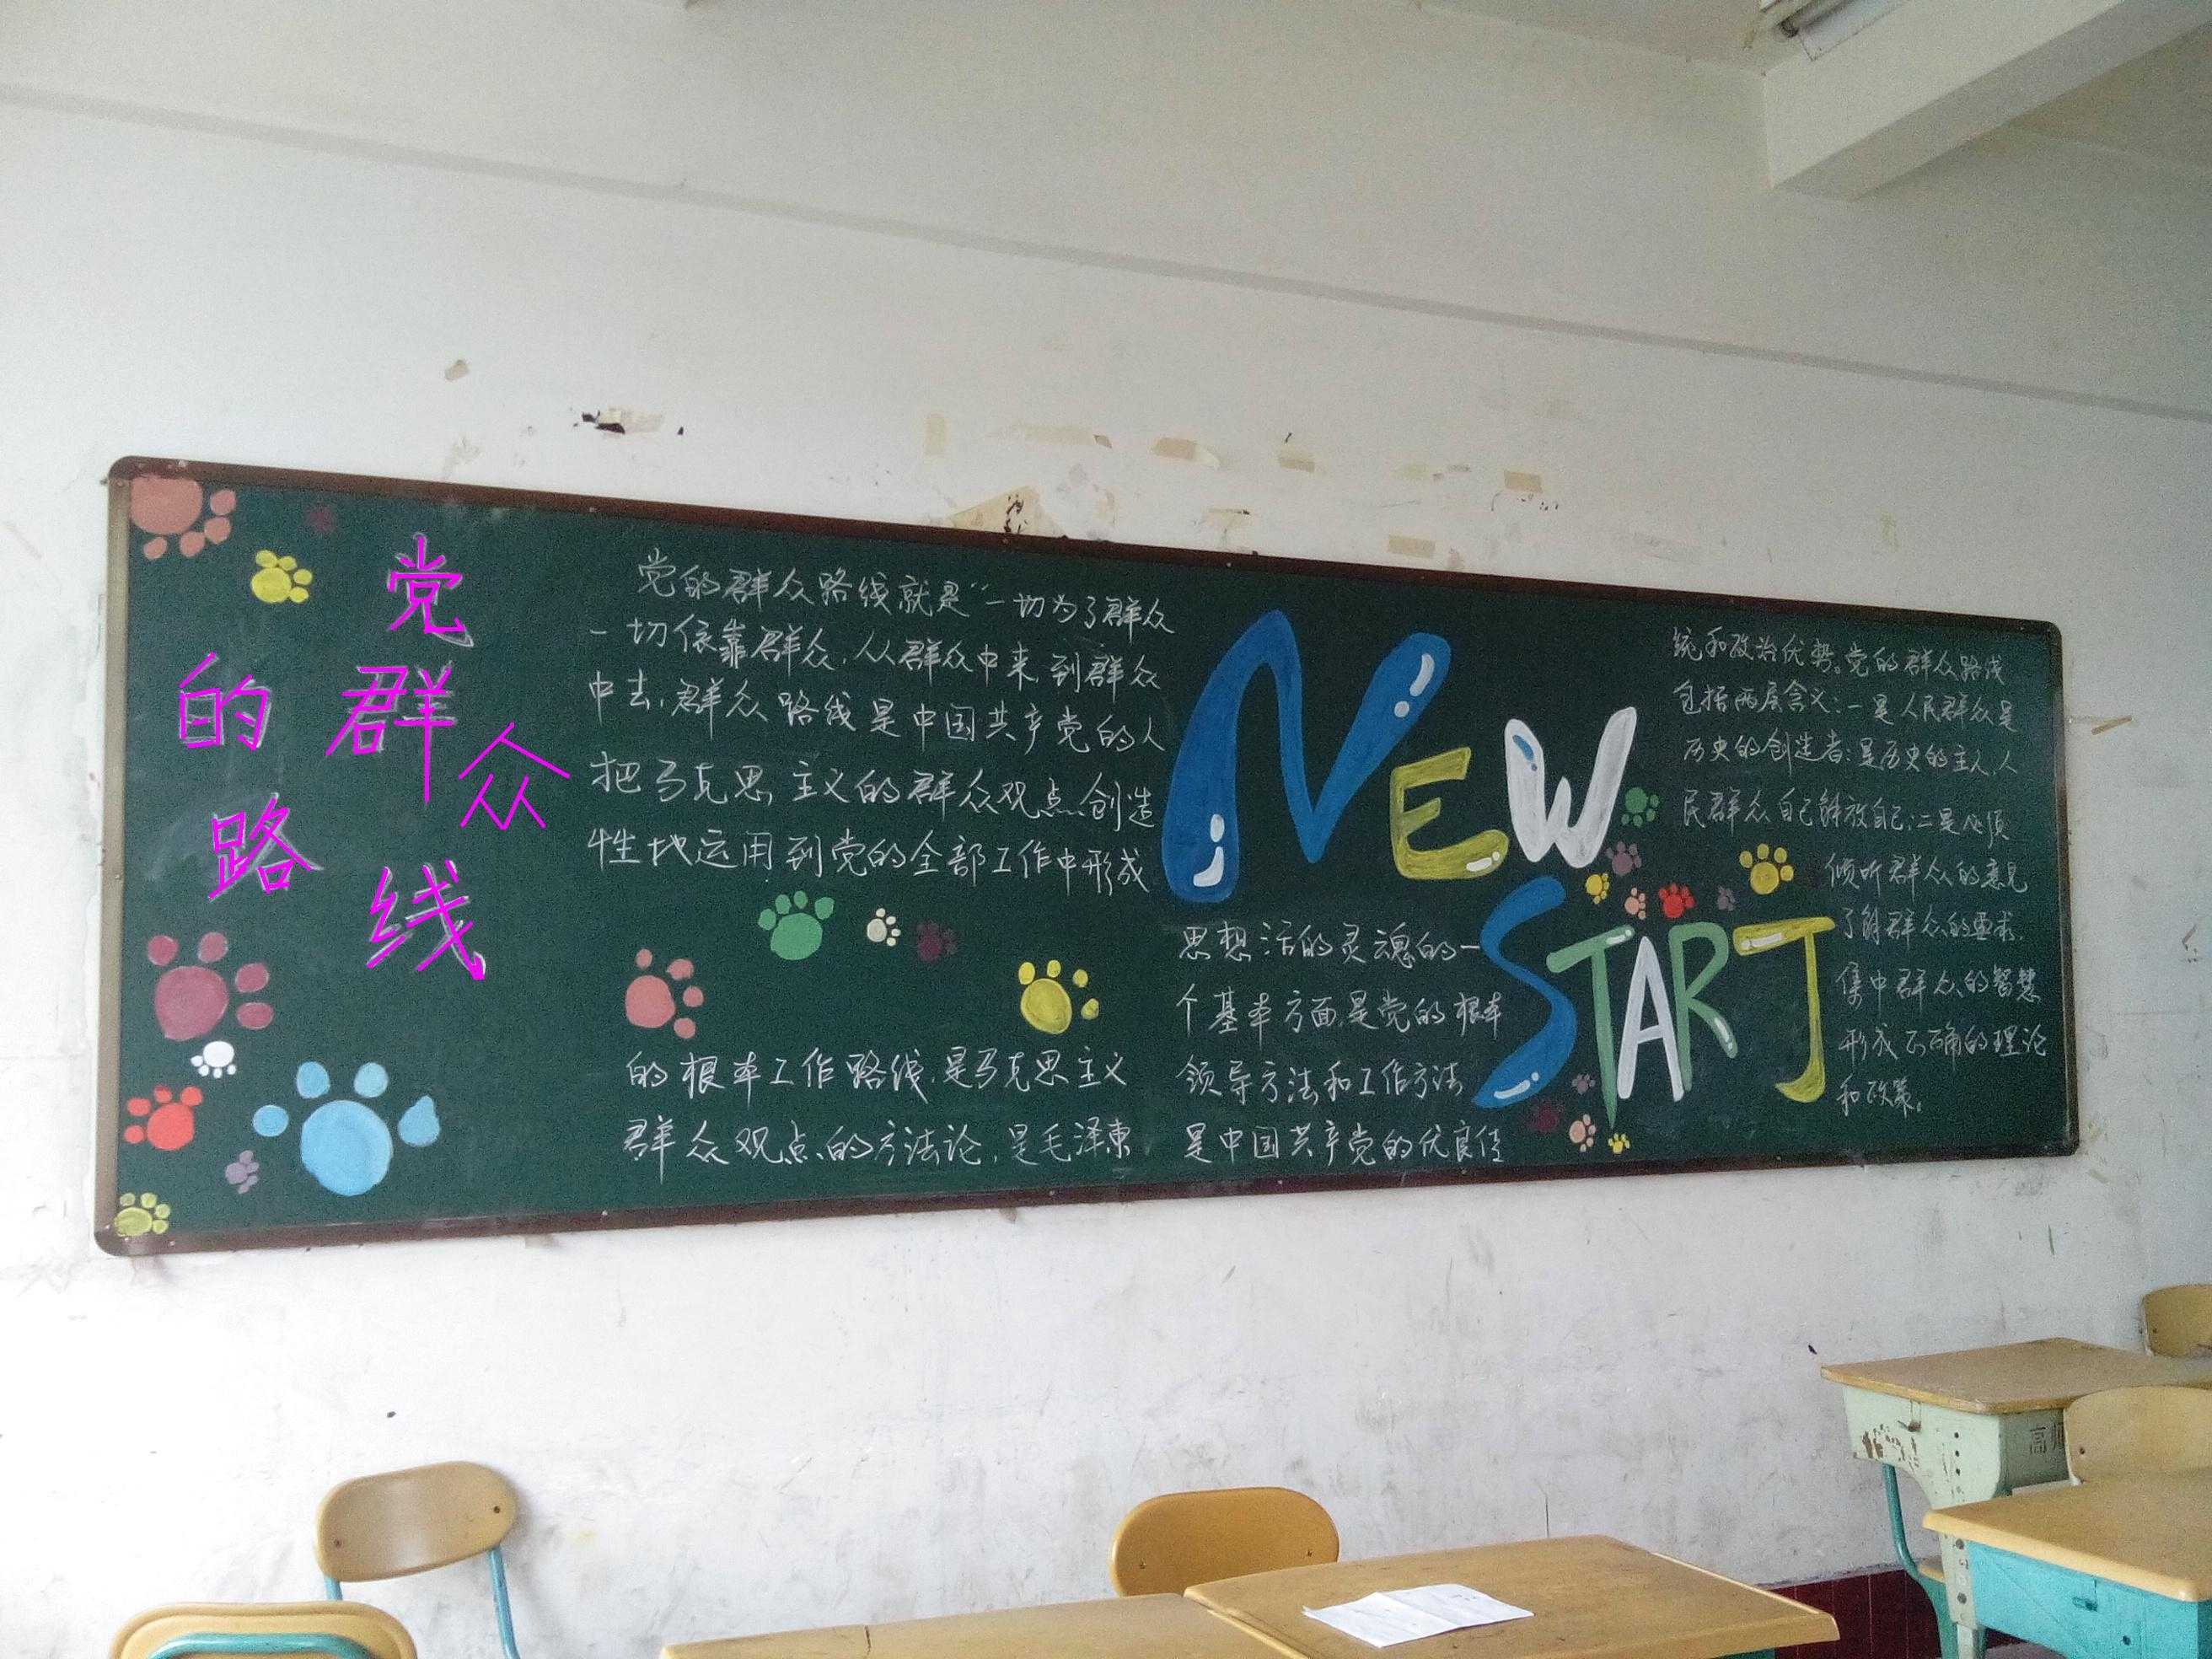 党的群众路线
党的群众路线就是“一切为了群众
一切依靠群众,从群众中来,到群众
中去,群众路线是中国共产党的人
把马克思主义的群众观点创造
性地运用到党的全部工作中形成
的根本工作路线,是马克思主义
群众观点的方法论,是毛泽东
NEW
START
思想活的灵魂的一
个基本方面,是党的根本
领导方法和工作方法
是中国共产党的优良传
统和政治优势。党的群众路线
包括两层含义:一是人民群众是
历史的创造者:是历史的主人,人
民群众自己解放自己;二是必须
倾听群众的意见
了解群众的要求,
集中群众的智慧
形成正确的理论
和政策。
高师